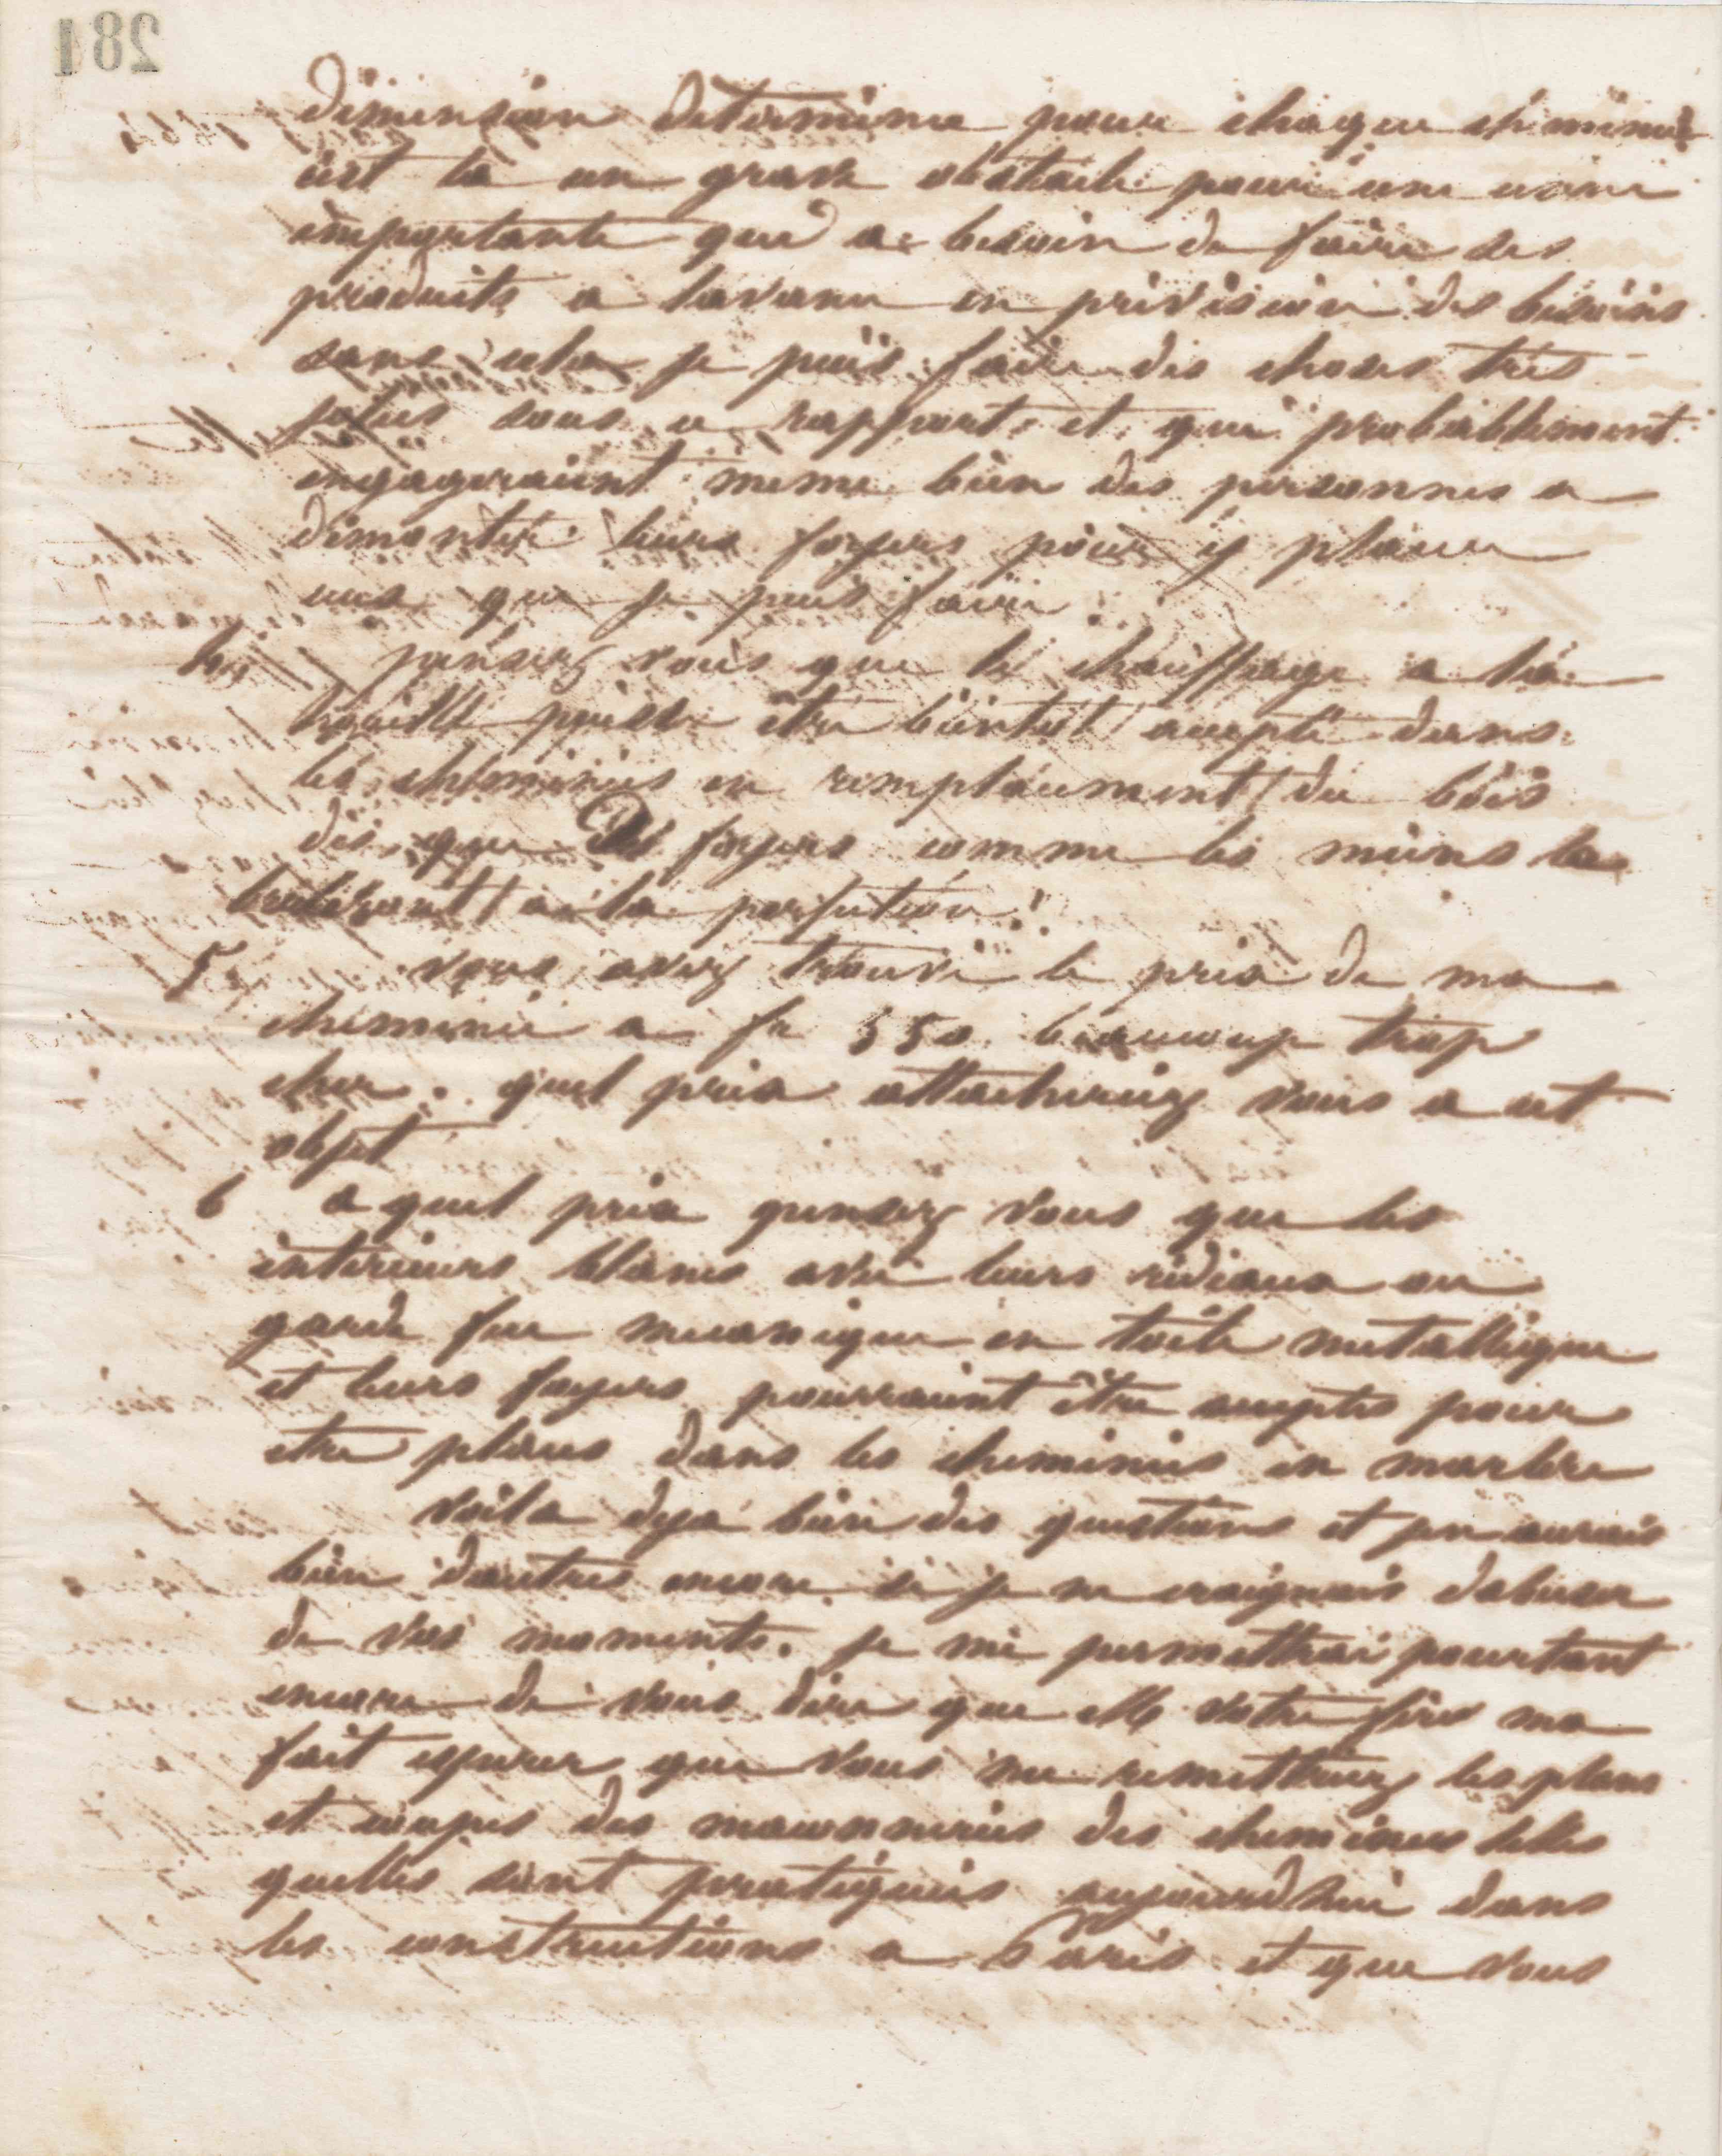 281
dimension determinée pour chaque cheminée
cest la un grave obstacle pour une usine
importante qui a besoin de faire des
produits a lavance en prévision des besoins
sans cela je puis faire des choses très
jolies sous ce rapport et qui probablement
engageraient meme bien des personnes a
démonter leurs foyers pour y placer
ceux que je puis faire
4 pensez vous que le chauffage a la
houille puisse être bientôt accepté dans
les cheminées en remplacement du bois
dès que des foyers comme les miens la
bruleront a la perfection?
5 vous avez trouvé le prix de ma
cheminée a fr 550 beaucoup trop
cher. quel prix attacheriez vous a cet
objet
6 a quel prix pensez vous que les
intérieurs blancs avec leurs rideaux ou
garde feu mecanique en toile metallique
et leurs foyers pourraient être acceptés pour
etre placés dans les cheminées en marbre
voila deja bien des questions et jen aurais
bien dautres encore si je ne craignais dabuser
de vos moments. je me permettrai pourtant
encore de vous dire que Mr votre fils ma
fait esperer que vous me remettriez les plans
et coupes des maconneries des cheminées telles
quelles sont pratiquées aujourdhui dans
les constructions a Paris et que vous